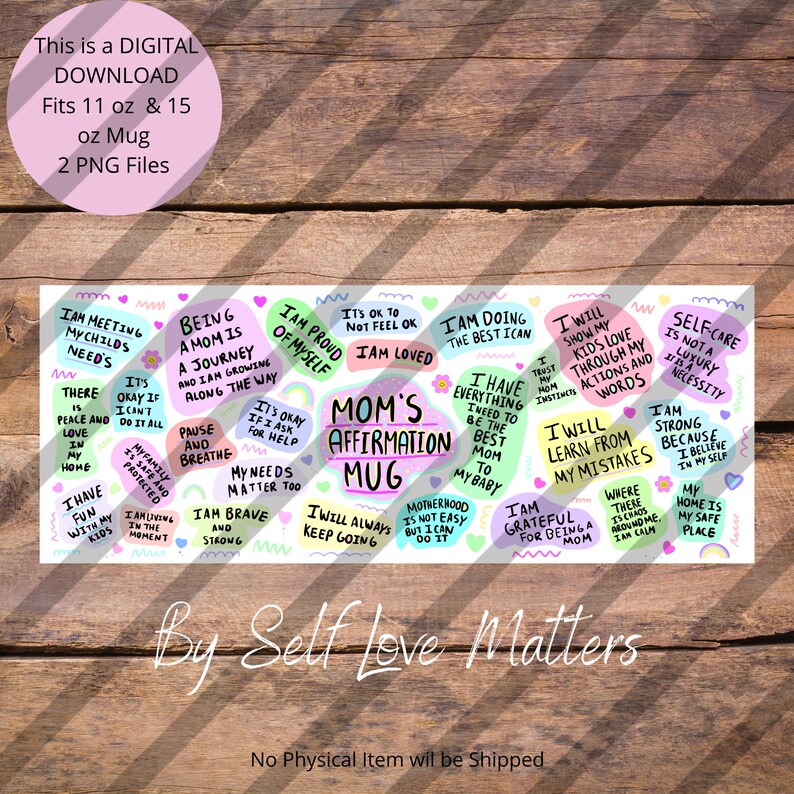 This is a DIGITAL
DOWNLOAD
Fits 11 oz & 15
oz Mug
2 PNG Files
I AM MEETING
MY CHILDS
NEED'S
BEING
A MOM IS
A JOURNEY
AND I AM GROWING
ALONG THE WAY
I AM PROUD
OF MYSELF
IT'S OK TO
NOT FEEL OK
I AM LOVED
I AM DOING
THE BEST I CAN
I WILL
SHOW MY
KIDS LOVE
THROUGH MY
ACTIONS AND
WORDS
SELF-CARE
IS NOT A
LUXURY
IT'S A
NECESSITY
THERE
IS
PEACE AND
LOVE
IN
MY
HOME
IT'S
OKAY IF
I CAN'T
DO IT ALL
PAUSE
AND
BREATHE
IT'S OKAY
IF I ASK
FOR HELP
MOM'S
AFFIRMATION
MUG
I HAVE
EVERYTHING
I NEED TO
BE THE
BEST
MOM
TO
MY BABY
I
TRUST
MY MOM
INSTINCTS
I WILL
LEARN FROM
MY MISTAKES
I AM
STRONG
BECAUSE
I BELIEVE
IN MY SELF
MY FAMILY
IS SAFE AND
PROTECTED
MY NEEDS
MATTER TOO
I HAVE
FUN
WITH MY
KIDS
I AM LIVING
IN THE
MOMENT
I AM BRAVE
AND
STRONG
I WILL ALWAYS
KEEP GOING
MOTHERHOOD
IS NOT EASY
BUT I CAN
DO IT
I AM
GRATEFUL
FOR BEING A
MOM
WHERE
THERE
IS CHAOS
AROUND ME,
I AM CALM
MY
HOME IS
MY SAFE
PLACE
By Self Love Matters
No Physical Item wil be Shipped